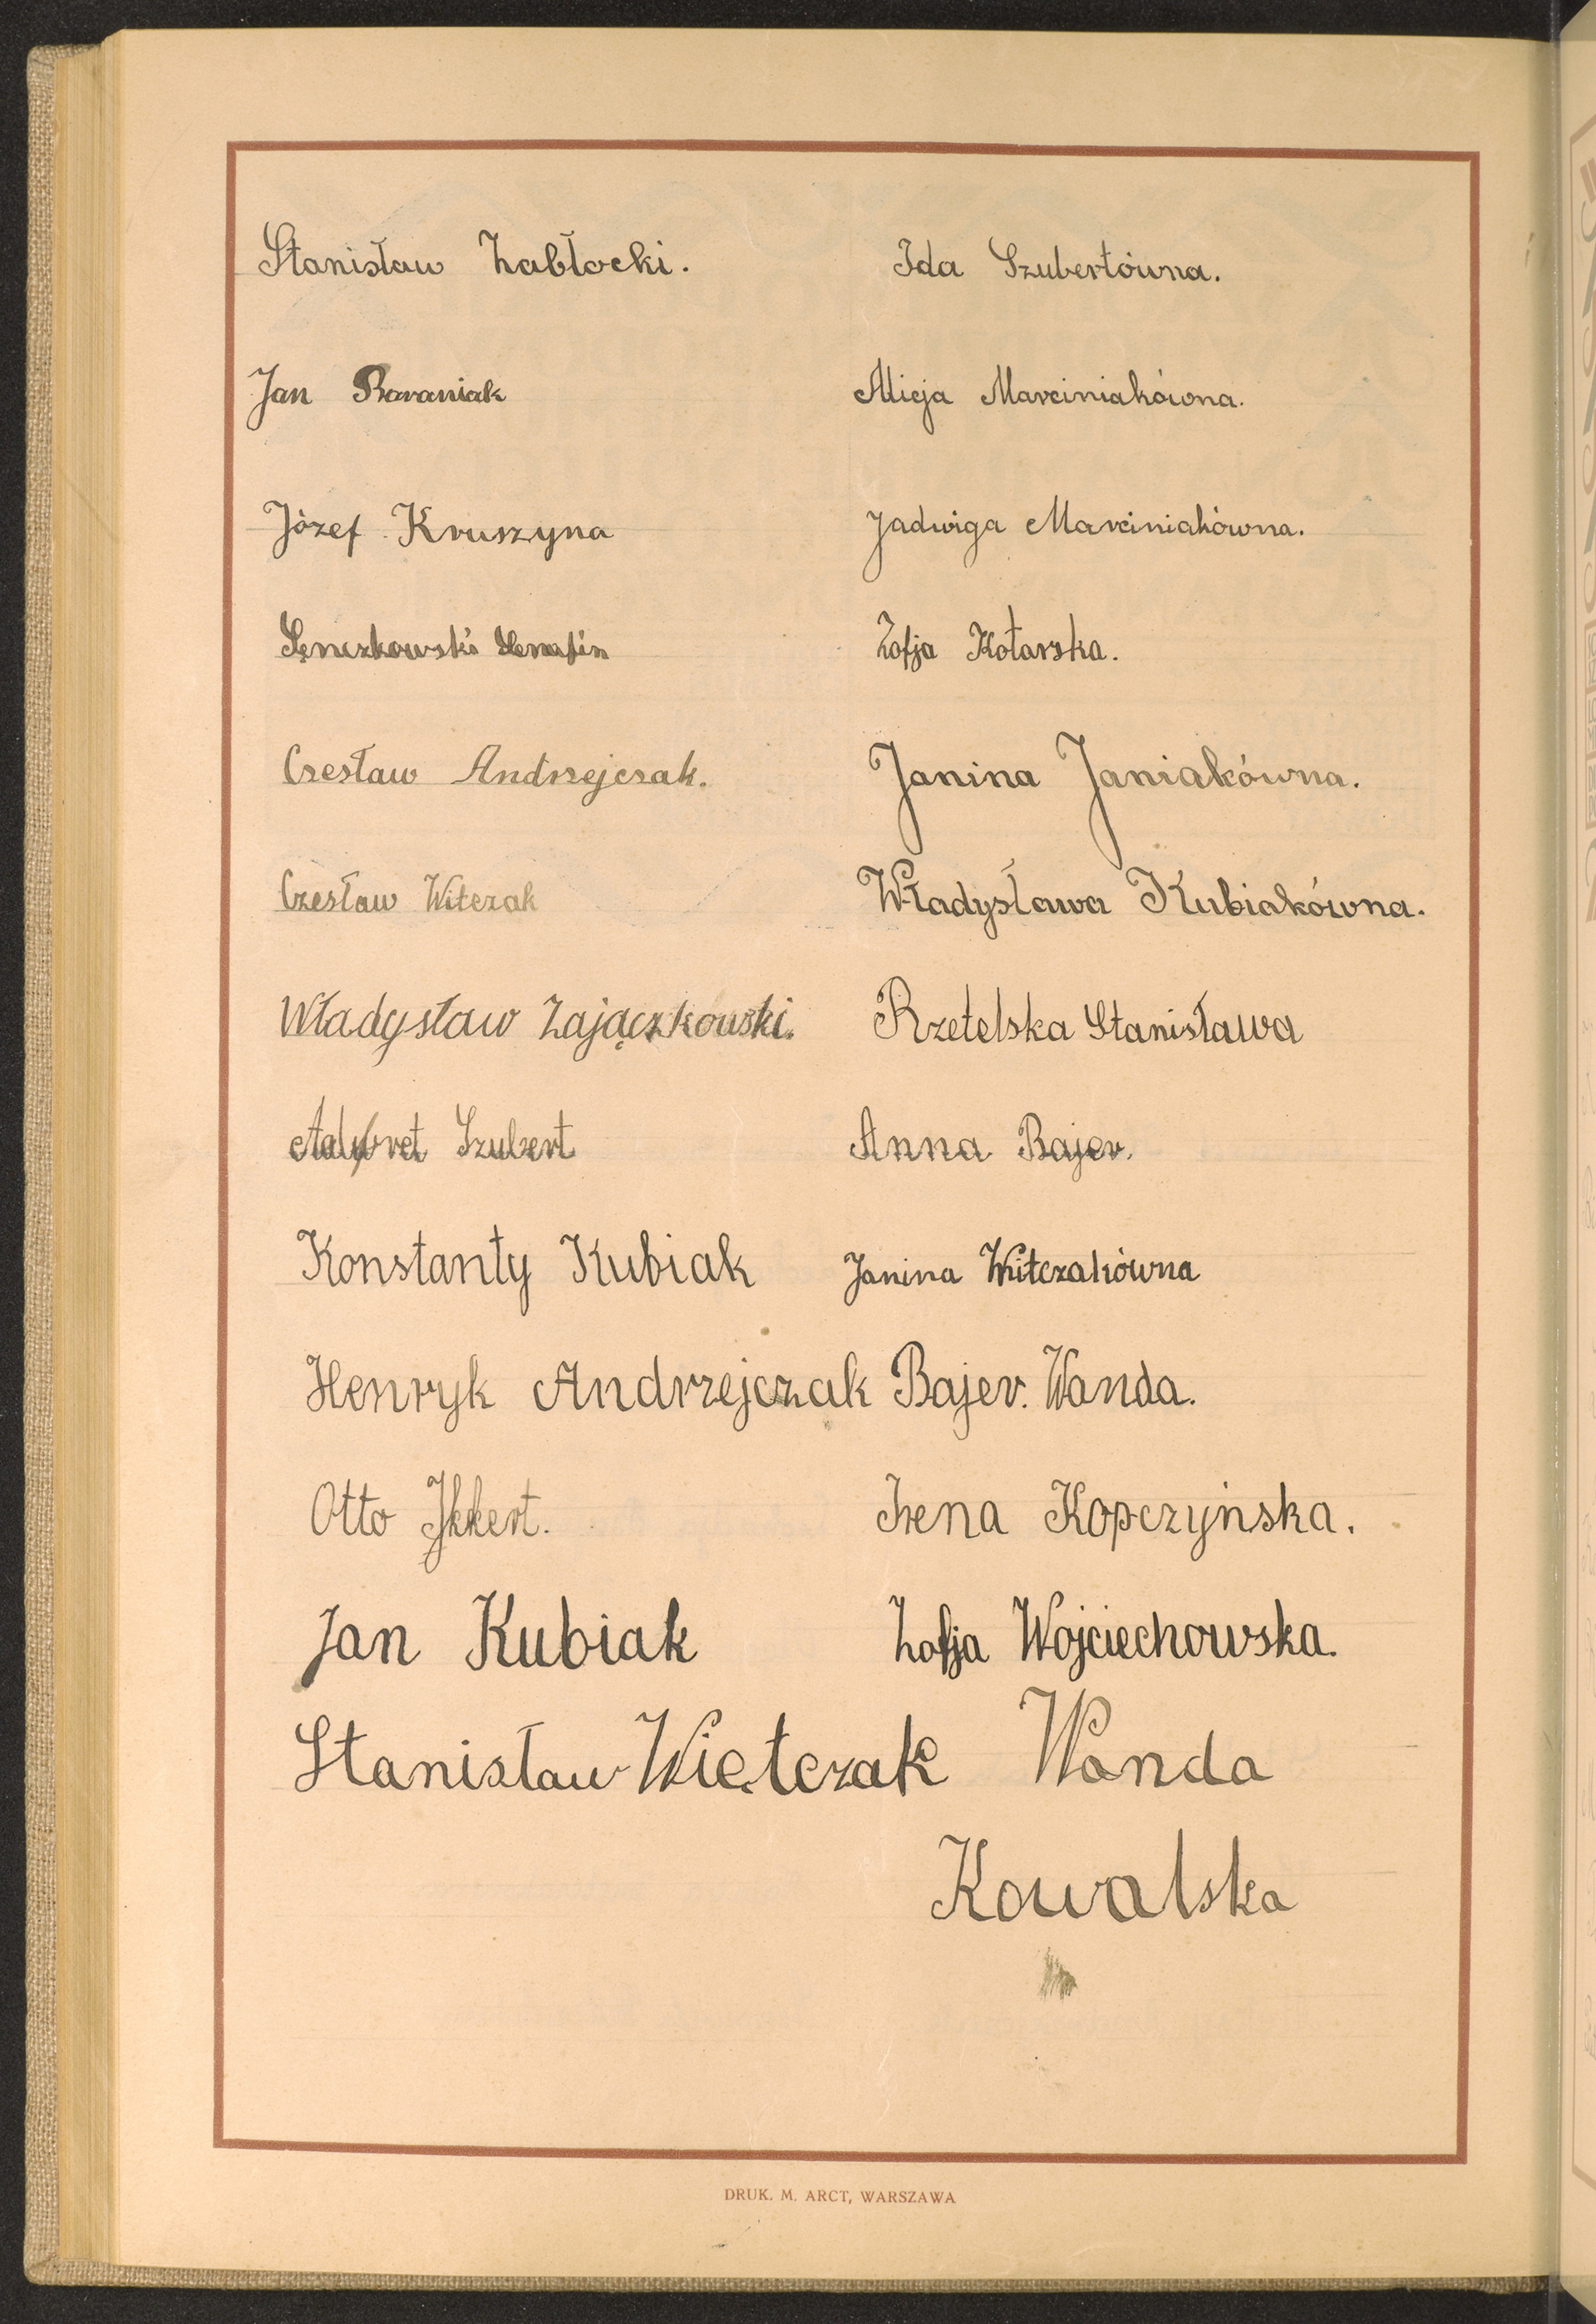 Stanisław Zabłocki. Ida Szubertówna.
Jan Baraniak Alicja Marciniakówna.
Józef Kruszyna Jadwiga Marciniakówna.
Zofja Kotarska.
Czesław Andrzejczak. Janina Janiakówna.
Czesław Witczak Władysława Kubiakówna.
Władysław Zajączkowski. Rzetelska Stanisława
Szubert Anna Bajer.
Konstanty Kubiak Janina Witczakówna
Henryk Andrzejczak Bajer. Wanda.
Otto Irena Kopczyńska.
Jan Kubiak Zofja Wojciechowska.
Stanisław Więtczak Wanda
Kowalska
DRUK. M. ARCT, WARSZAWA